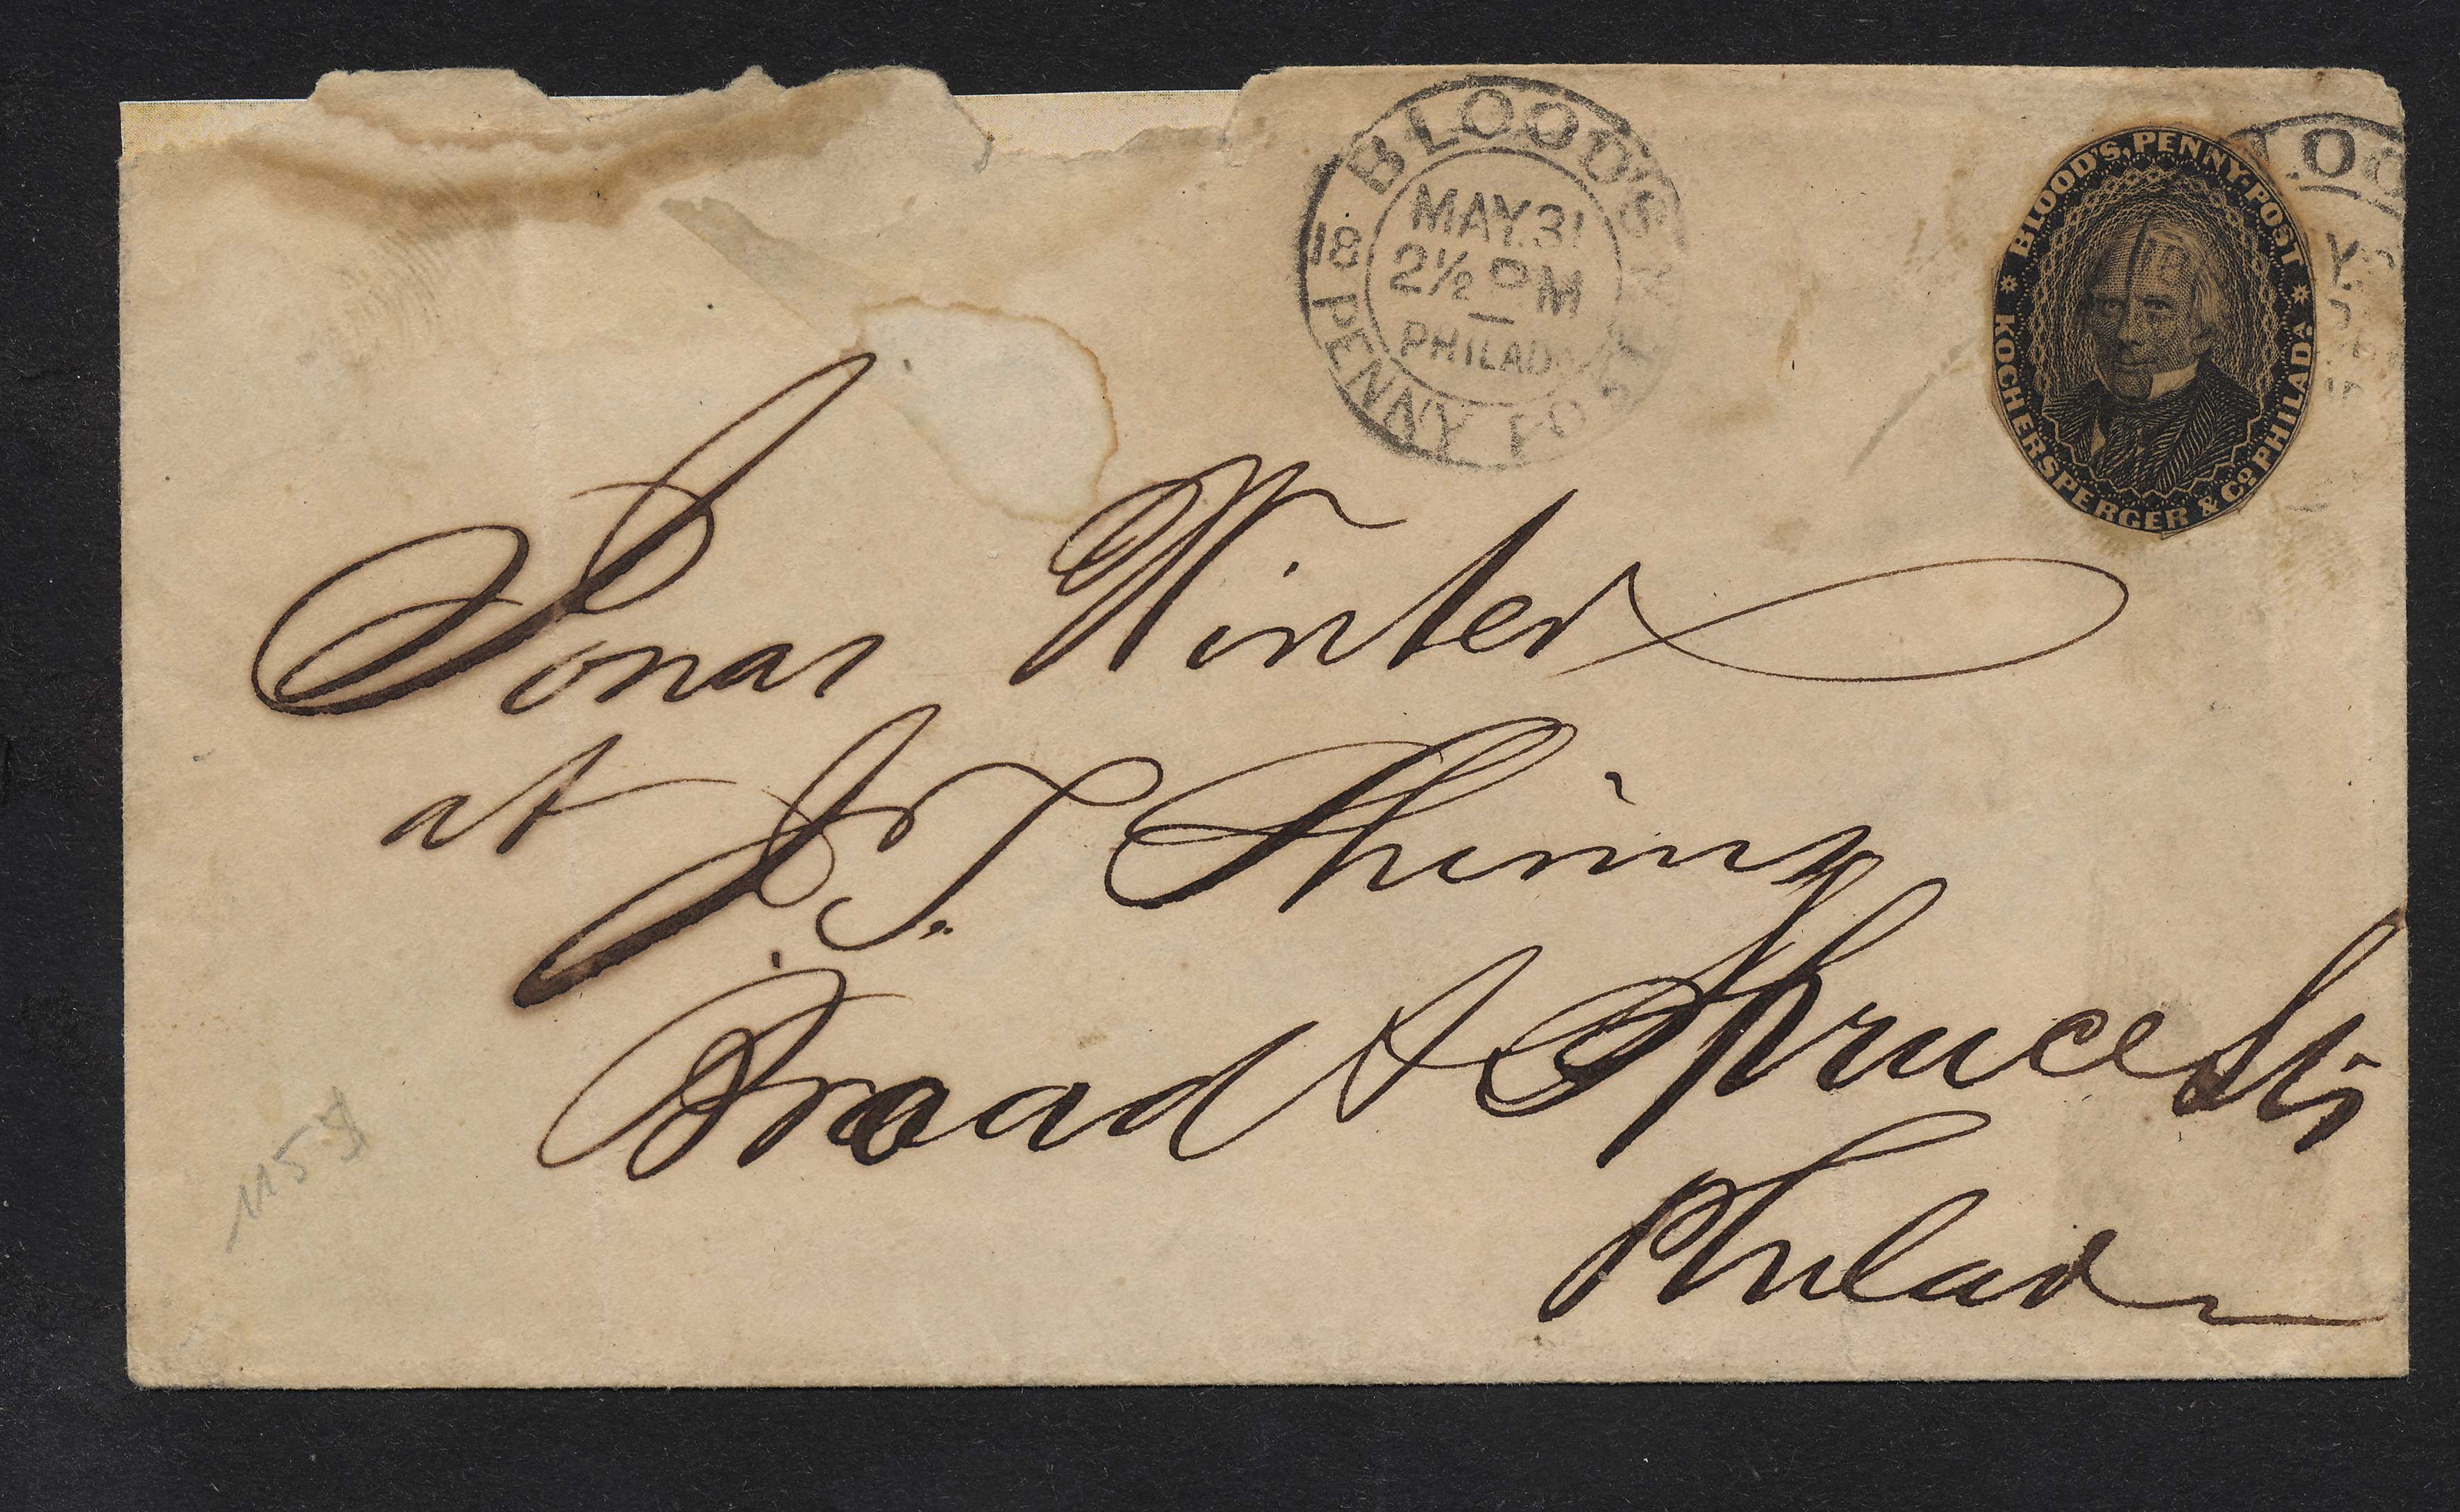 BLOOD'S
18
MAY 31
2½ PM
PHILADA
PENNY POST
BLOOD'S. PENNY-POST
KOCHERSPERGER & Co. PHILADA.
Jonas Winter
at J. T. Shinn
Broad & Spruce Sts
Philad